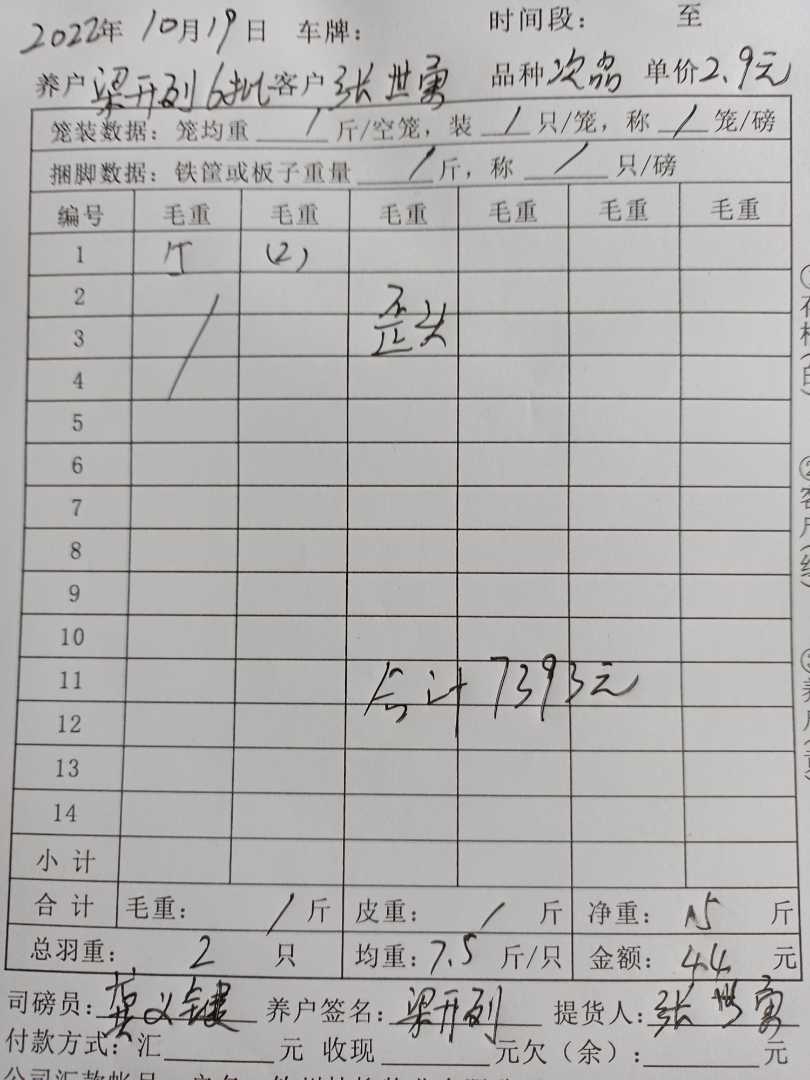 2022年10月19日 车牌： 时间段： 至
养户 梁开列6批 客户 张世勇 品种 次品 单价 2.9元
笼装数据：笼均重 / 斤/空笼，装 / 只/笼，称 / 笼/磅
捆脚数据：铁筐或板子重量 / 斤，称 / 只/磅
编号 毛重 毛重 毛重 毛重 毛重 毛重
1 15 (2)
2
歪头
3
4
5
6
7
8
9
10
11 合计7393元
12
13
14
小计
合计 毛重： / 斤 皮重： / 斤 净重： 15 斤
总羽重： 2 只 均重：7.5 斤/只 金额： 44 元
司磅员： 义键 养户签名： 梁开列 提货人： 张世勇
付款方式：汇 元 收现 元欠（余）： 元
公司汇款帐号